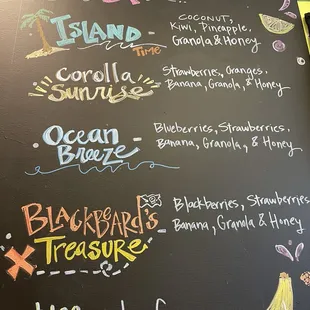 Island
Time
Coconut,
Kiwi, Pineapple,
Granola & Honey
Corolla
Sunrise
Strawberries, Oranges,
Banana, Granola, & Honey
Ocean
Breeze
Blueberries, Strawberries,
Banana, Granola, & Honey
Blackbeard's
Treasure
Blackberries, Strawberries
Banana, Granola & Honey